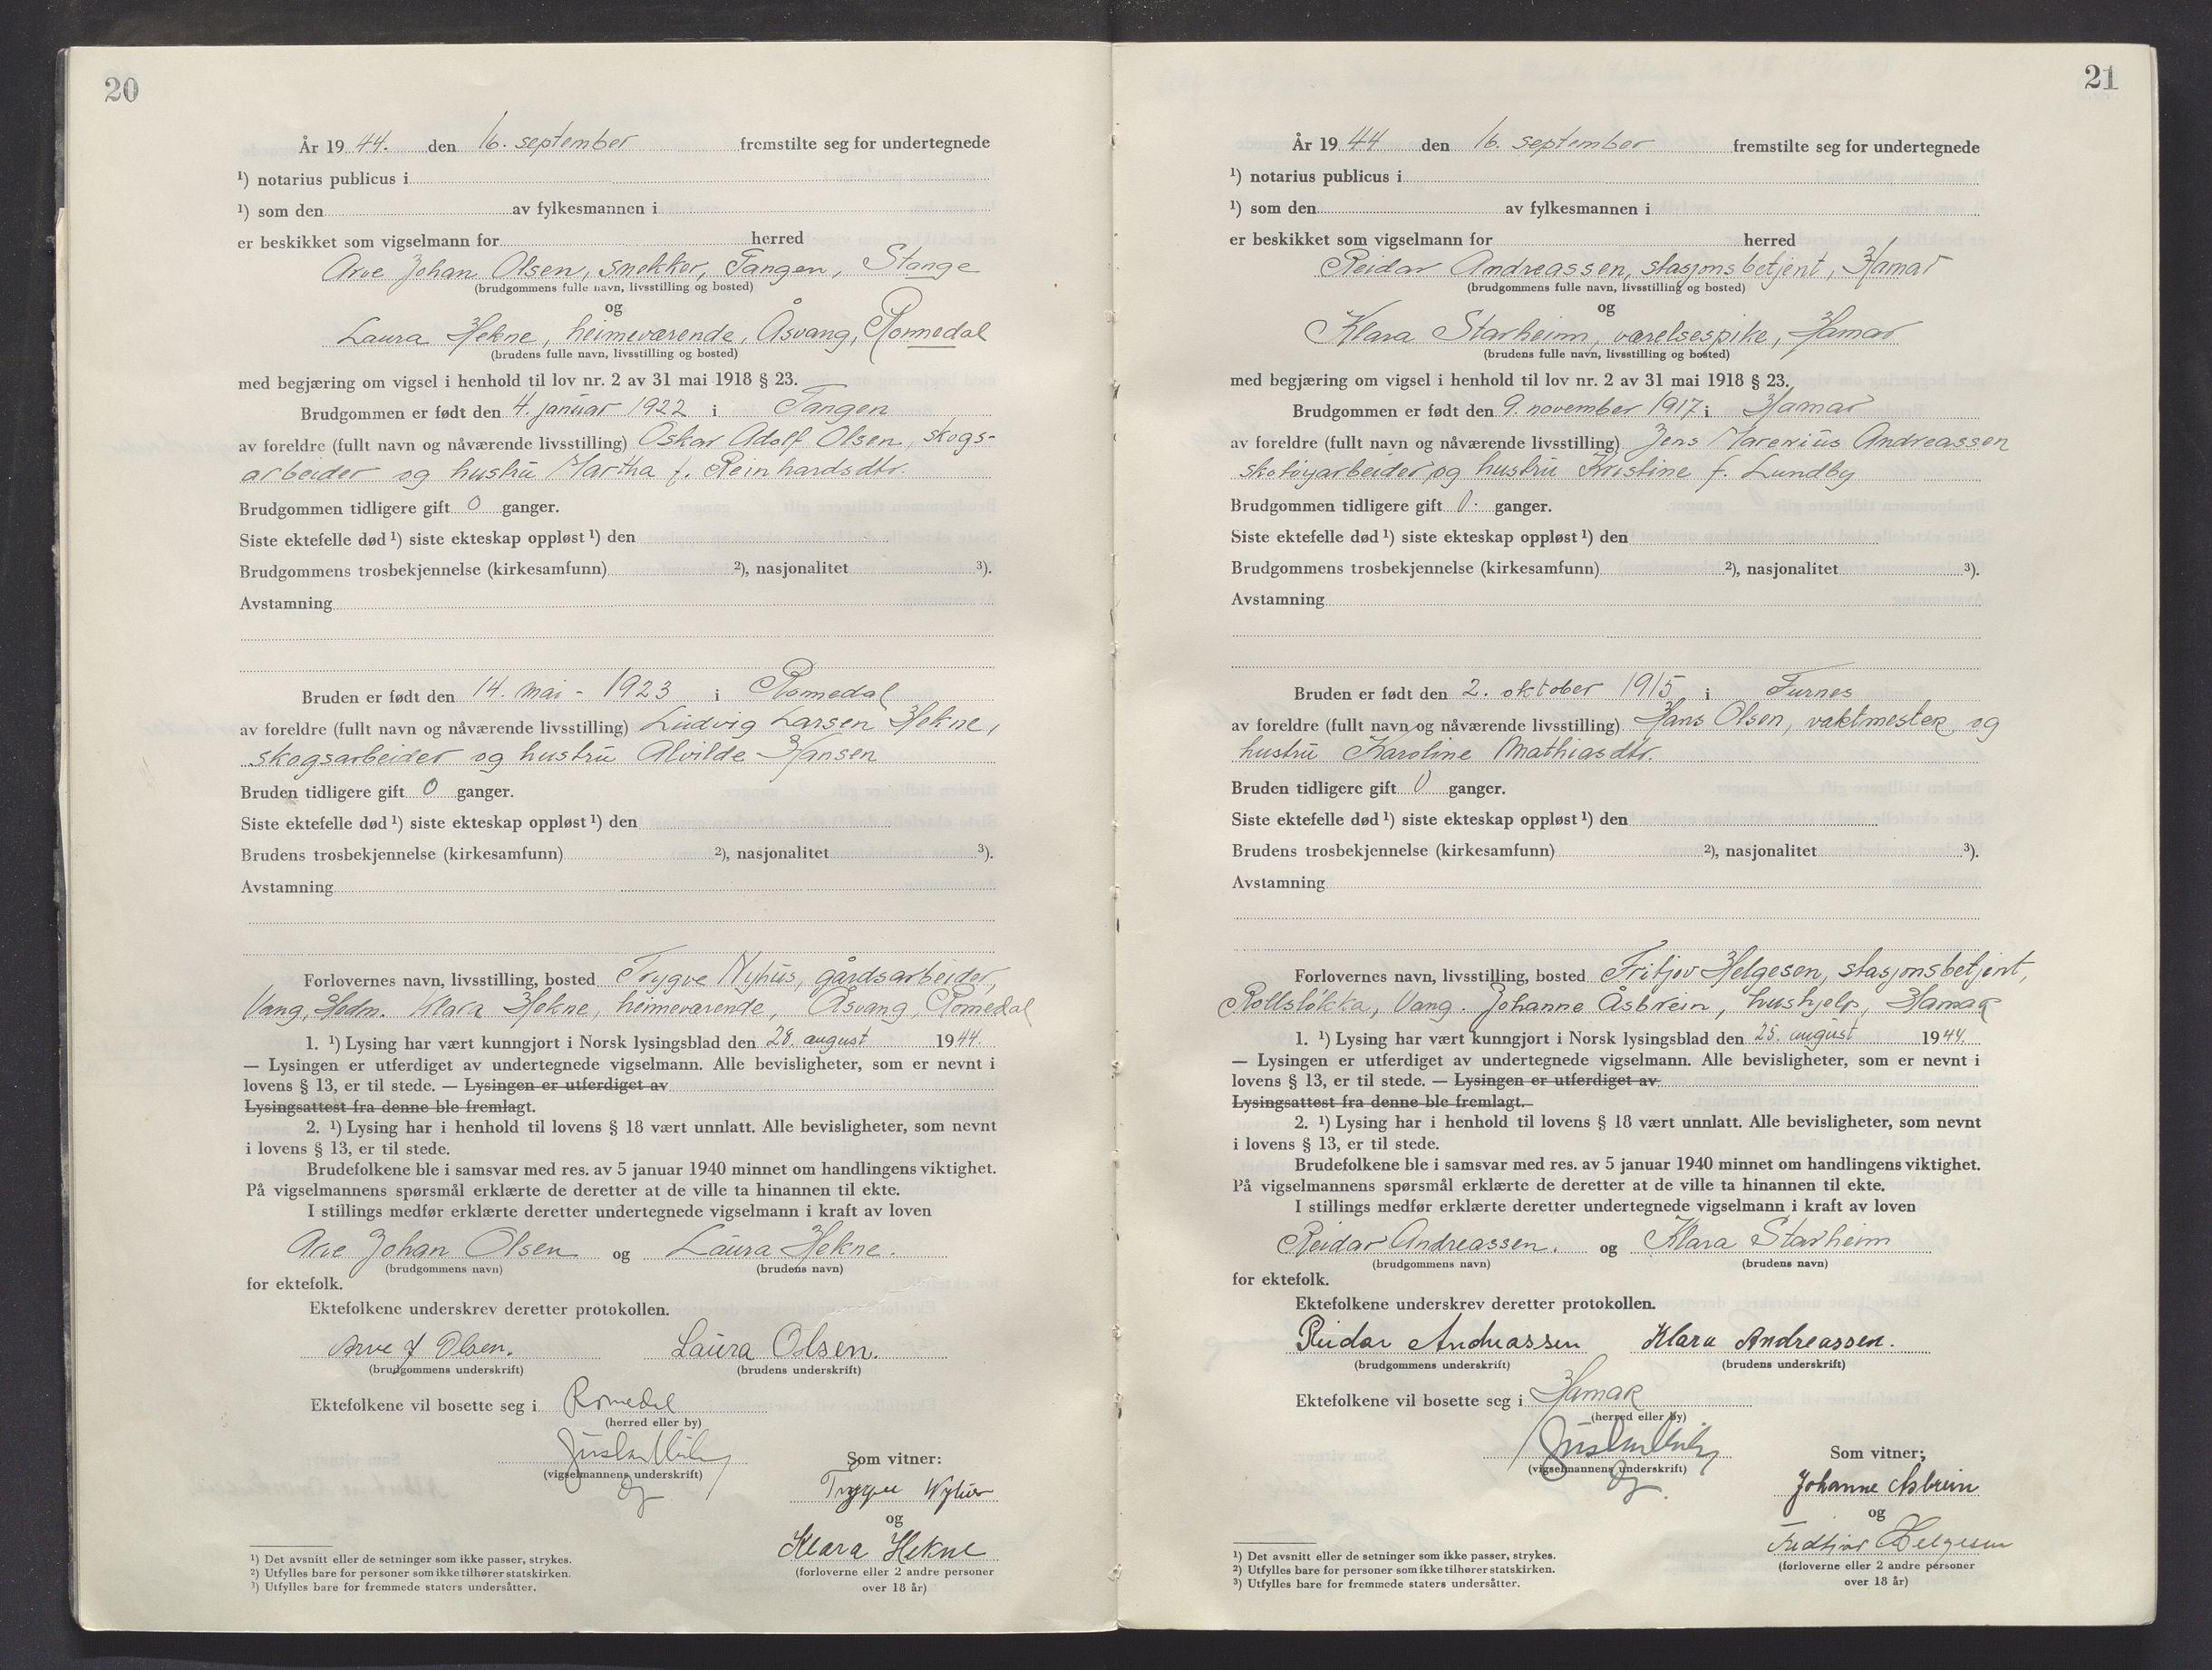 20
År 19 44. den 16. september fremstilte seg for undertegnede
¹) notarius publicus i
¹) som den av fylkesmannen i
er beskikket som vigselmann for herred
Arve Johan Olsen, snekker, Tangen, Stange
(brudgommens fulle navn, livsstilling og bosted)
og
Laura Hekne, heimeværende, Åsvang, Romedal
(brudens fulle navn, livsstilling og bosted)
med begjæring om vigsel i henhold til lov nr. 2 av 31 mai 1918 § 23.
Brudgommen er født den 4. januar 1922 i Tangen
av foreldre (fullt navn og nåværende livsstilling) Oskar Adolf Olsen, skogs-
arbeider og hustru Martha f. Reinhardsdtr.
Brudgommen tidligere gift 0 ganger.
Siste ektefelle død ¹) siste ekteskap oppløst ¹) den
Brudgommens trosbekjennelse (kirkesamfunn) ²), nasjonalitet ³).
Avstamning
Bruden er født den 14. mai - 1923 i Romedal
av foreldre (fullt navn og nåværende livsstilling) Ludvig Larsen Hekne,
skogsarbeider og hustru Alvilde Hansen
Bruden tidligere gift 0 ganger.
Siste ektefelle død ¹) siste ekteskap oppløst ¹) den
Brudens trosbekjennelse (kirkesamfunn) ²), nasjonalitet ³).
Avstamning
Forlovernes navn, livsstilling, bosted Trygve Nyhus, gårdsarbeider,
Vang, Hedm. Klara Hekne, heimeværende, Åsvang, Romedal
1. ¹) Lysing har vært kunngjort i Norsk lysingsblad den 28. august 1944.
— Lysingen er utferdiget av undertegnede vigselmann. Alle bevisligheter, som er nevnt i
lovens § 13, er til stede. — Lysingen er utferdiget av
Lysingsattest fra denne ble fremlagt.
2. ¹) Lysing har i henhold til lovens § 18 vært unnlatt. Alle bevisligheter, som nevnt
i lovens § 13, er til stede.
Brudefolkene ble i samsvar med res. av 5 januar 1940 minnet om handlingens viktighet.
På vigselmannens spørsmål erklærte de deretter at de ville ta hinannen til ekte.
I stillings medfør erklærte deretter undertegnede vigselmann i kraft av loven
Arve Johan Olsen og Laura Hekne.
(brudgommens navn) (brudens navn)
for ektefolk.
Ektefolkene underskrev deretter protokollen.
Arve J Olsen. Laura Olsen.
(brudgommens underskrift) (brudens underskrift)
Ektefolkene vil bosette seg i Romedal
(herred eller by)
(vigselmannens underskrift)
Som vitner:
Trygve Nyhus
og
Klara Hekne
(forloverne eller 2 andre personer
over 18 år)
¹) Det avsnitt eller de setninger som ikke passer, strykes.
²) Utfylles bare for personer som ikke tilhører statskirken.
³) Utfylles bare for fremmede staters undersåtter.
21
År 19 44 den 16. september fremstilte seg for undertegnede
¹) notarius publicus i
¹) som den av fylkesmannen i
er beskikket som vigselmann for herred
Reidar Andreassen, stasjonsbetjent, Hamar
(brudgommens fulle navn, livsstilling og bosted)
og
Klara Starheim, værelsespike, Hamar
(brudens fulle navn, livsstilling og bosted)
med begjæring om vigsel i henhold til lov nr. 2 av 31 mai 1918 § 23.
Brudgommen er født den 9. november 1917 i Hamar
av foreldre (fullt navn og nåværende livsstilling) Jens Marenius Andreassen
skotøyarbeider og hustru Kristine f. Lundby
Brudgommen tidligere gift 0. ganger.
Siste ektefelle død ¹) siste ekteskap oppløst ¹) den
Brudgommens trosbekjennelse (kirkesamfunn) ²), nasjonalitet ³).
Avstamning
Bruden er født den 2. oktober 1915 i Furnes
av foreldre (fullt navn og nåværende livsstilling) Hans Olsen, vaktmester og
hustru Karoline Mathiasdtr.
Bruden tidligere gift 0 ganger.
Siste ektefelle død ¹) siste ekteskap oppløst ¹) den
Brudens trosbekjennelse (kirkesamfunn) ²), nasjonalitet ³).
Avstamning
Forlovernes navn, livsstilling, bosted Fritjov Helgesen, stasjonsbetjent,
Rollsløkka, Vang. Johanne Åsbrein, hushjelp, Hamar
1. ¹) Lysing har vært kunngjort i Norsk lysingsblad den 25. august 1944.
— Lysingen er utferdiget av undertegnede vigselmann. Alle bevisligheter, som er nevnt i
lovens § 13, er til stede. — Lysingen er utferdiget av
Lysingsattest fra denne ble fremlagt.
2. ¹) Lysing har i henhold til lovens § 18 vært unnlatt. Alle bevisligheter, som nevnt
i lovens § 13, er til stede.
Brudefolkene ble i samsvar med res. av 5 januar 1940 minnet om handlingens viktighet.
På vigselmannens spørsmål erklærte de deretter at de ville ta hinannen til ekte.
I stillings medfør erklærte deretter undertegnede vigselmann i kraft av loven
Reidar Andreassen. og Klara Starheim
(brudgommens navn) (brudens navn)
for ektefolk.
Ektefolkene underskrev deretter protokollen.
Reidar Andreassen Klara Andreassen.
(brudgommens underskrift) (brudens underskrift)
Ektefolkene vil bosette seg i Hamar
(herred eller by)
(vigselmannens underskrift)
Som vitner:
Johanne Åsbrein
og
Fridtjov Helgesen
(forloverne eller 2 andre personer
over 18 år)
¹) Det avsnitt eller de setninger som ikke passer, strykes.
²) Utfylles bare for personer som ikke tilhører statskirken.
³) Utfylles bare for fremmede staters undersåtter.